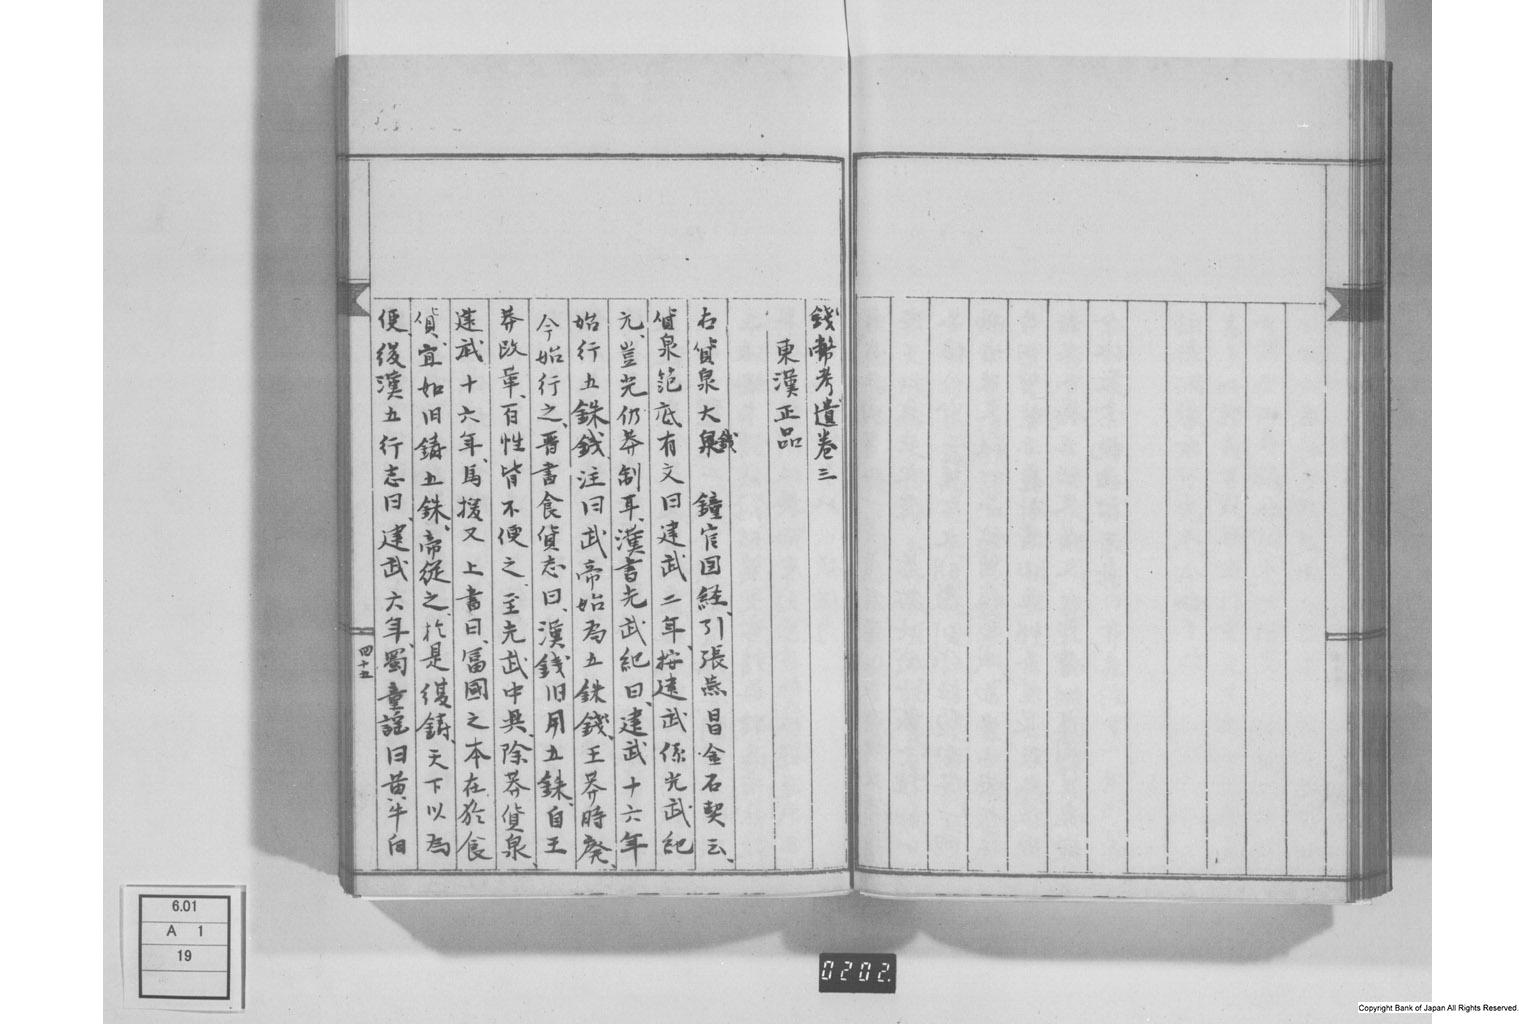 錢幣考遺卷三
東漢正品
右貨泉大泉錢 鐘官図経、引張燕昌金石契云、
貨泉范底有文曰建武二年、按建武係光武紀
元、豈光仍莽制耳、漢書光武紀曰、建武十六年
始行五銖錢、注曰武帝始為五銖錢、王莽時廃、
今始行之、晋書食貨志曰、漢錢旧用五銖、自王
莽改革、百性皆不便之、至光武中興、除莽貨泉、
建武十六年、馬援又上書曰、冨國之本在於食
貨、宜如旧鋳五銖、帝従之、於是復鋳、天下以為
便、後漢五行志曰、建武六年、蜀童謡曰黄牛白
四十五
6.01
A 1
19
0202
Copyright Bank of Japan All Rights Reserved.